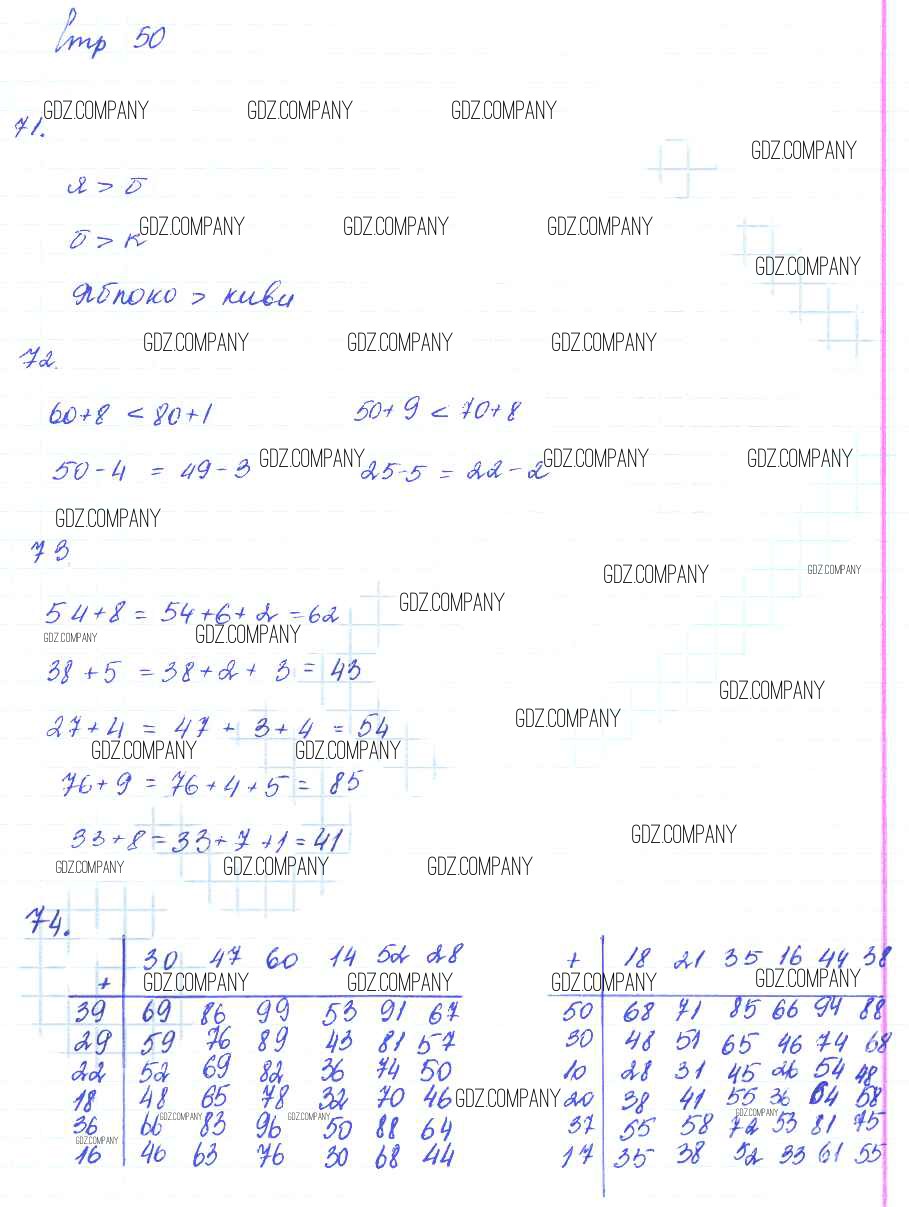 Стр 50
GDZ.COMPANY GDZ.COMPANY GDZ.COMPANY
71.
GDZ.COMPANY
я > б
б > к GDZ.COMPANY GDZ.COMPANY GDZ.COMPANY
GDZ.COMPANY
яблоко > киви
GDZ.COMPANY GDZ.COMPANY GDZ.COMPANY
72.
60+8 < 80+1 50+9 < 70+8
50-4 = 49-3 GDZ.COMPANY 25-5 = 22-2 GDZ.COMPANY GDZ.COMPANY
GDZ.COMPANY
73
GDZ.COMPANY GDZ.COMPANY
54+8 = 54+6+2 = 62 GDZ.COMPANY
GDZ.COMPANY GDZ.COMPANY
38+5 = 38+2+3 = 43
GDZ.COMPANY
27+4 = 47+3+4 = 54 GDZ.COMPANY
GDZ.COMPANY GDZ.COMPANY
76+9 = 76+4+5 = 85
33+8 = 33+7+1 = 41 GDZ.COMPANY
GDZ.COMPANY GDZ.COMPANY GDZ.COMPANY
74.
30 47 60 14 52 28 + 18 21 35 16 44 38
+ GDZ.COMPANY GDZ.COMPANY GDZ.COMPANY GDZ.COMPANY
39 69 86 99 53 91 67 50 68 71 85 66 94 88
29 59 76 89 43 81 57 30 48 51 65 46 74 68
22 52 69 82 36 74 50 10 28 31 45 26 54 48
18 48 65 78 32 70 46 GDZ.COMPANY 20 38 41 55 36 64 58
GDZ.COMPANY GDZ.COMPANY GDZ.COMPANY
36 66 83 96 50 88 64 37 55 58 72 53 81 75
GDZ.COMPANY
16 46 63 76 30 68 44 17 35 38 52 33 61 55